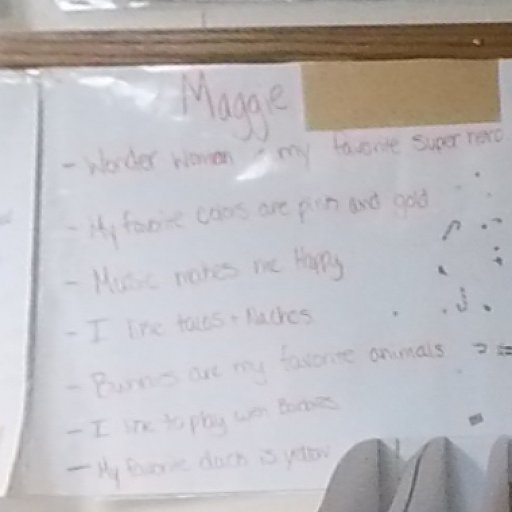 Maggie
- Wonder Woman my favorite super hero
- My favorite colors are pink and gold
- Music makes me Happy
- I like tacos + Nachos
- Bunnies are my favorite animals
- I like to play with Barbies
- My favorite is yellow